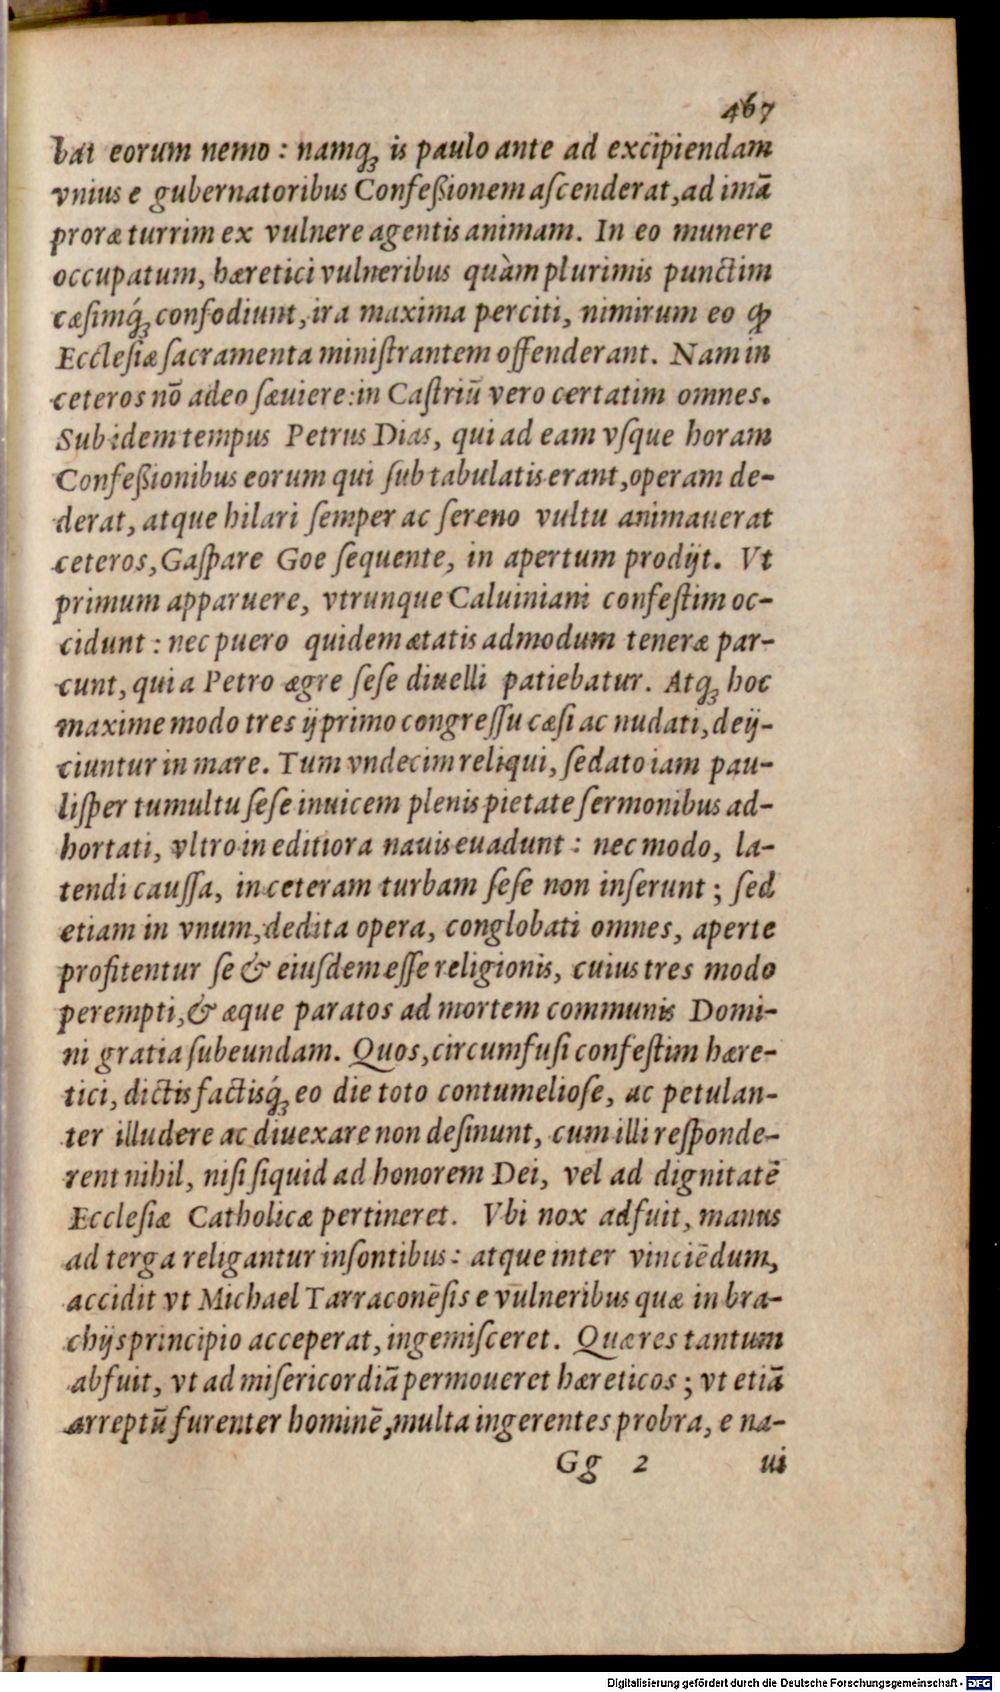 467
bat eorum nemo : namq́; is paulo ante ad excipiendam
vnius e gubernatoribus Confeßionem aſcenderat, ad imā
proræ turrim ex vulnere agentis animam. In eo munere
occupatum, hæretici vulneribus quàm plurimis punctim
cæſimq́; confodiunt, ira maxima perciti, nimirum eo ꝙ
Eccleſiæ ſacramenta miniſtrantem offenderant. Nam in
ceteros nō adeo ſæuiere: in Caſtriū vero certatim omnes.
Sub idem tempus Petrus Dias, qui ad eam vſque horam
Confeßionibus eorum qui ſub tabulatis erant, operam de-
derat, atque hilari ſemper ac ſereno vultu animauerat
ceteros, Gaſpare Goe ſequente, in apertum prodijt. Vt
primum apparuere, vtrunque Caluiniani confeſtim oc-
cidunt : nec puero quidem ætatis admodum teneræ par-
cunt, qui a Petro ægre ſeſe diuelli patiebatur. Atq; hoc
maxime modo tres ij primo congreſſu cæſi ac nudati, deij-
ciuntur in mare. Tum vndecim reliqui, ſedato iam pau-
liſper tumultu ſeſe inuicem plenis pietate ſermonibus ad-
hortati, vltro in editiora nauis euadunt : nec modo, la-
tendi cauſſa, in ceteram turbam ſeſe non inſerunt ; ſed
etiam in vnum, dedita opera, conglobati omnes, aperte
profitentur ſe & eiuſdem eſſe religionis, cuius tres modo
perempti, & æque paratos ad mortem communis Domi-
ni gratia ſubeundam. Quos, circumfuſi confeſtim hære-
tici, dictis factisq́; eo die toto contumelioſe, ac petulan-
ter illudere ac diuexare non deſinunt, cum illi reſponde-
rent nihil, niſi ſiquid ad honorem Dei, vel ad dignitatē
Eccleſiæ Catholicæ pertineret. Vbi nox adfuit, manus
ad terga religantur inſontibus : atque inter vinciēdum,
accidit vt Michael Tarraconēſis e vulneribus quæ in bra-
chijs principio acceperat, ingemiſceret. Quæ res tantum
abfuit, vt ad miſericordiā permoueret hæreticos ; vt etiā
arreptū furenter hominē, multa ingerentes probra, e na-
Gg 2 ui
Digitalisierung gefördert durch die Deutsche Forschungsgemeinschaft - DFG